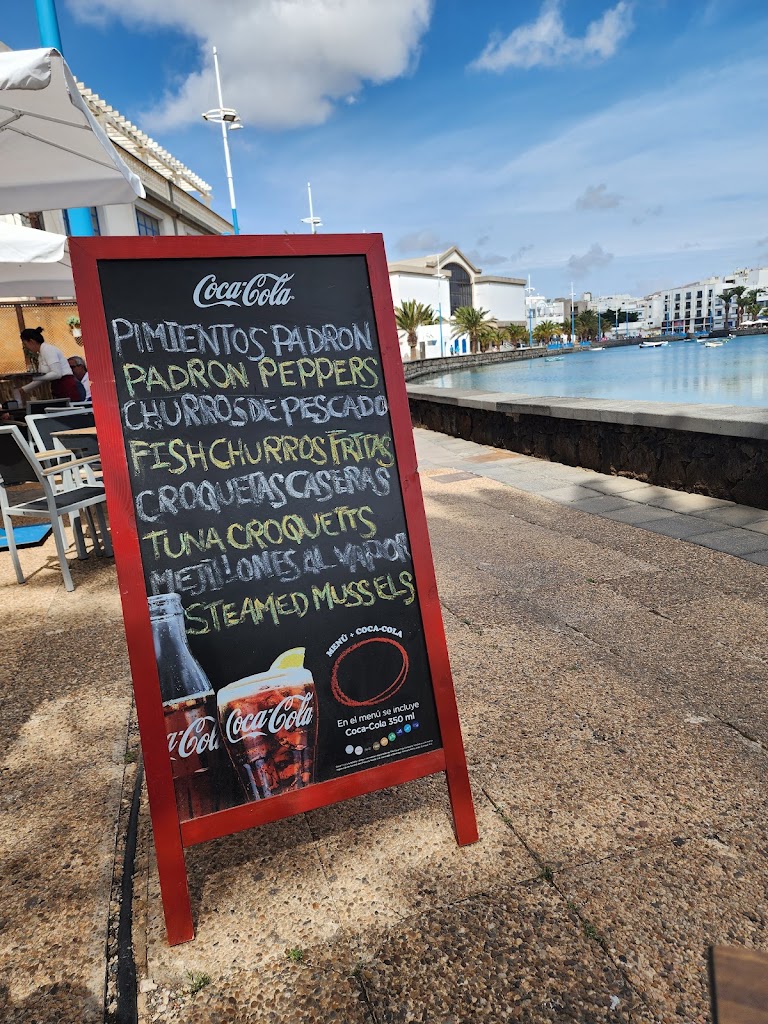 Coca-Cola
PIMIENTOS PADRON
PADRON PEPPERS
CHURROS DE PESCADO
FISH CHURROS FRITAS
CROQUETAS CASERAS
TUNA CROQUETTS
MEJILLONES AL VAPOR
STEAMED MUSSELS
MENÚ + COCA-COLA
En el menú se incluye
Coca-Cola 350 ml
Coca-Cola